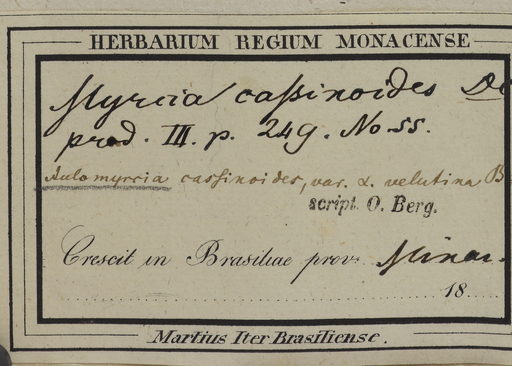 HERBARIUM REGIUM MONACENSE
Myrcia caßinoides DC
prod. III. p. 249. No 55.
Aulomyrcia cassinoides, var. α. velutina B
script. O. Berg.
Crescit in Brasiliae prov. Minar.
18
Martius Iter Brasiliense.